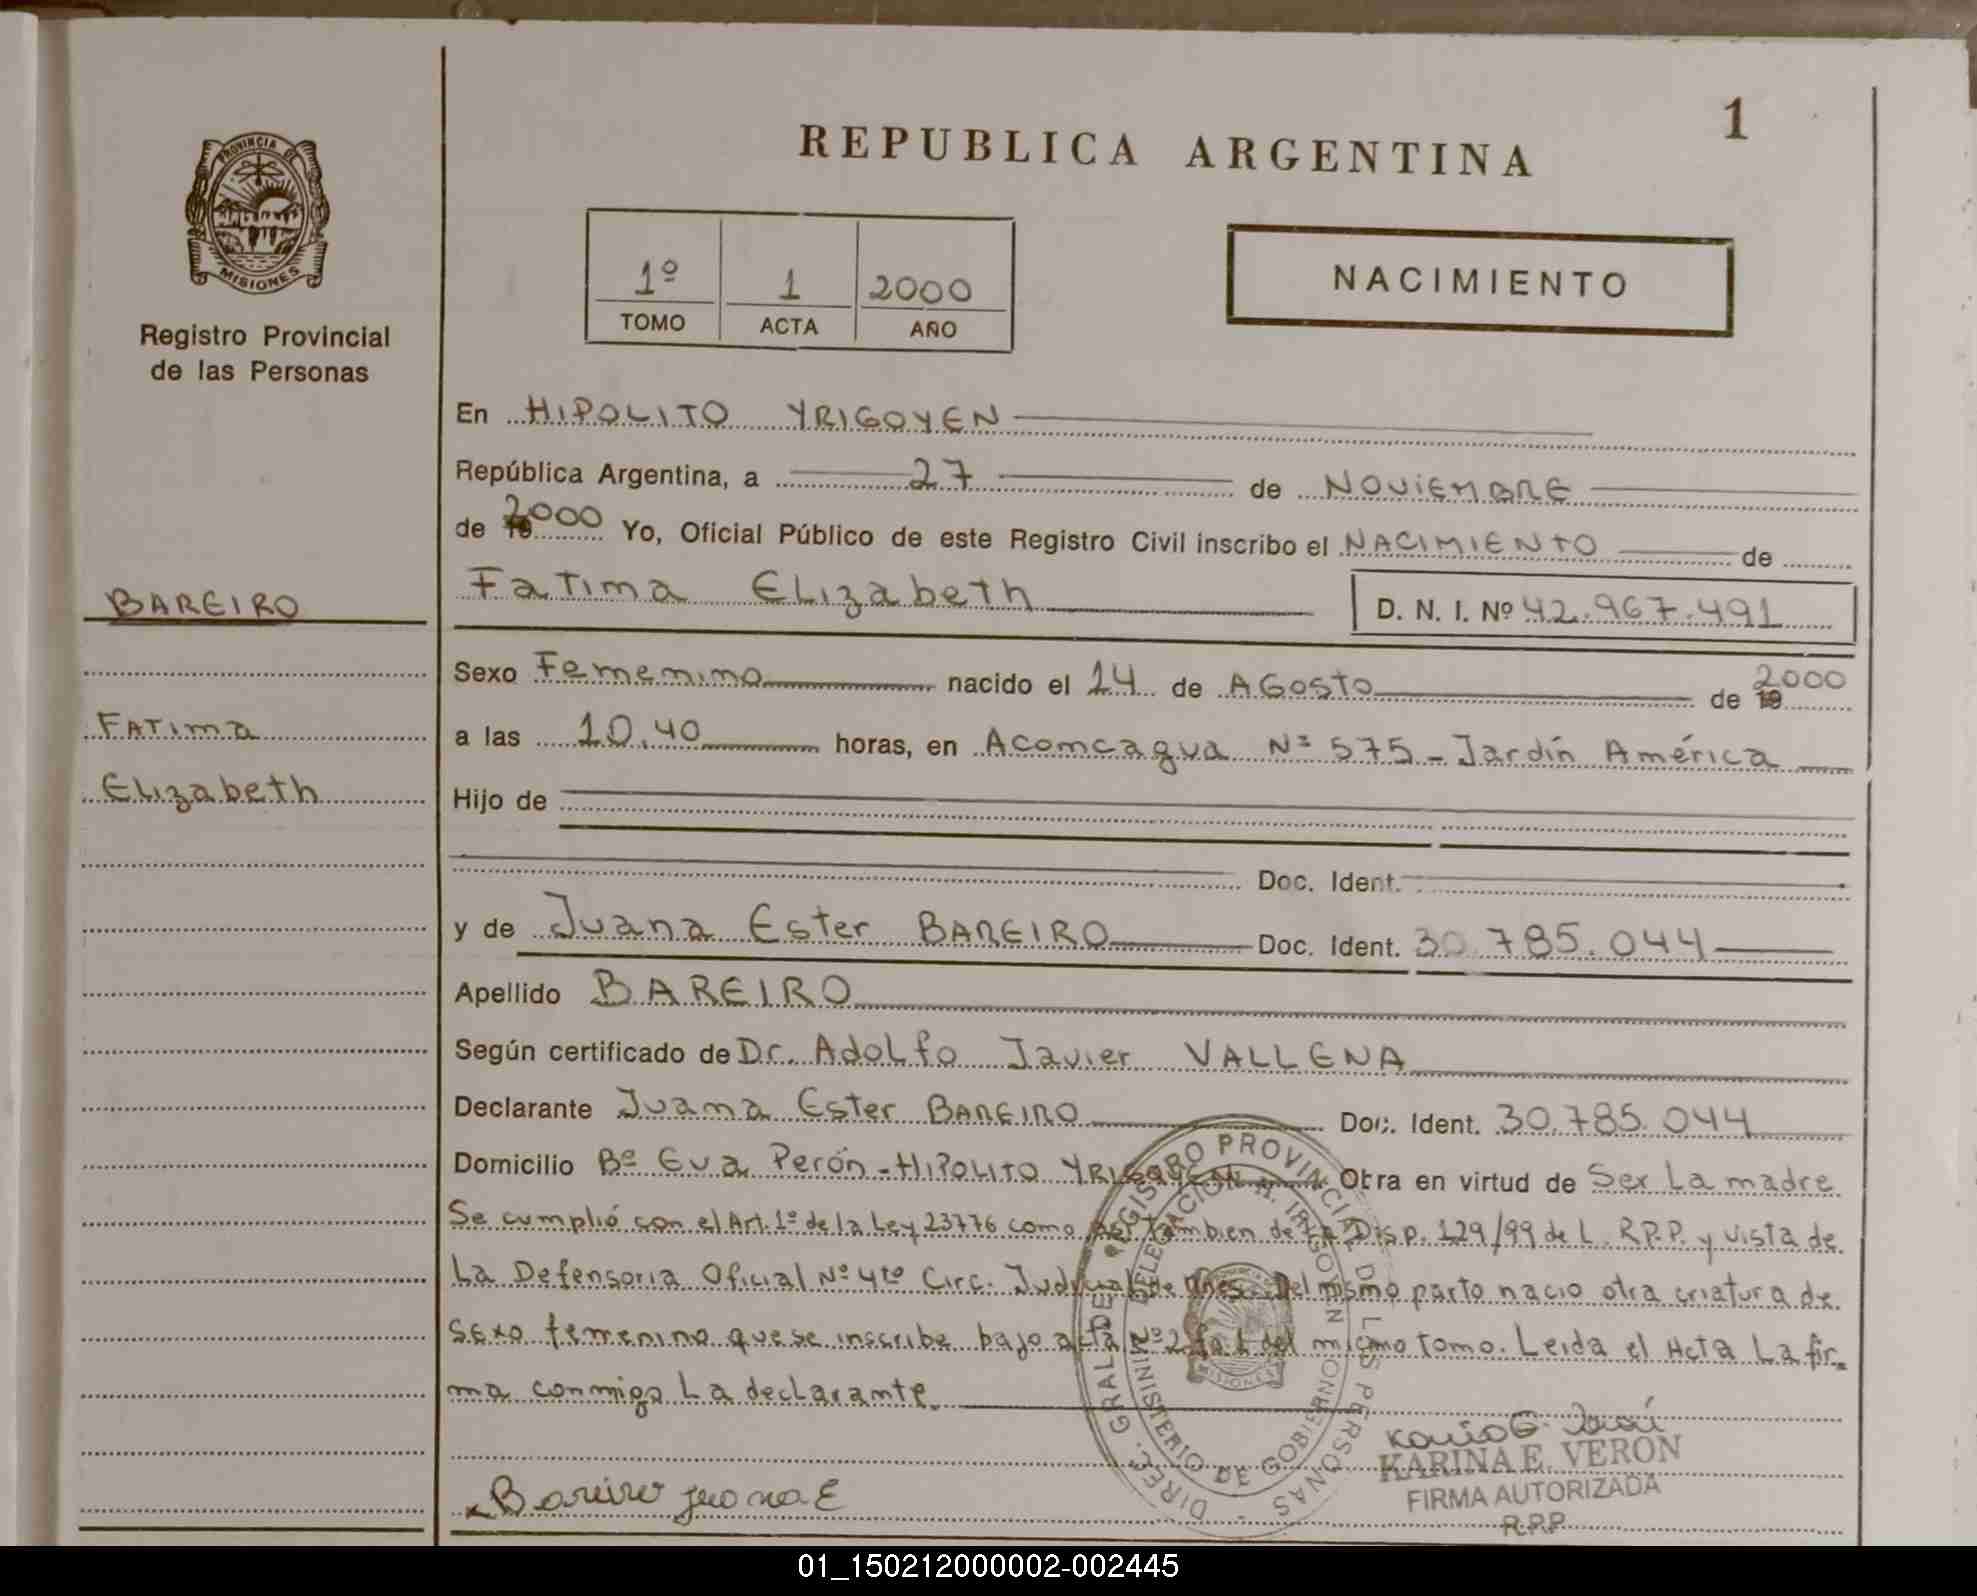 1
REPUBLICA ARGENTINA
PROVINCIA DE
MISIONES
Registro Provincial
de las Personas
1º 1 2000
TOMO ACTA AÑO
NACIMIENTO
En HIPOLITO YRIGOYEN
República Argentina, a 27 de NOVIEMBRE
de 2000 Yo, Oficial Público de este Registro Civil inscribo el NACIMIENTO de
BAREIRO
Fatima Elizabeth D. N. I. Nº 42.967.491
Sexo Femenino nacido el 14 de AGosto de 2000
FATima
a las 10,40 horas, en Aconcagua Nº 575 - Jardín América
Elizabeth
Hijo de
Doc. Ident.
y de Juana Ester BAREIRO Doc. Ident. 30.785.044
Apellido BAREIRO
Según certificado de Dr. Adolfo Javier VALLENA
Declarante Juana Ester BAREIRO Doc. Ident. 30.785.044
Domicilio Bº Eva Perón - HIPOLITO YRIGOYEN Obra en virtud de Ser La madre
Se cumplió con el Art. 1º de la Ley 23776 como así tambien de la Disp. 129/99 de L. R.P.P. y vista de
La Defensoria Oficial Nº 4to Circ. Judicial de Mnes. Del mismo parto nacio otra criatura de
sexo femenino que se inscribe bajo acta Nº 2 fº 1 del mismo tomo. Leida el Acta La fir=
ma conmigo La declarante.
DIREC. GRAL DE REGISTRO PROVINCIAL DE LAS PERSONAS
DELEGACION H. IRIGOYEN
MINISTERIO DE GOBIERNO
MISIONES
KARINA E. VERON
FIRMA AUTORIZADA
R.P.P.
Bareiro Juana E
01_150212000002-002445